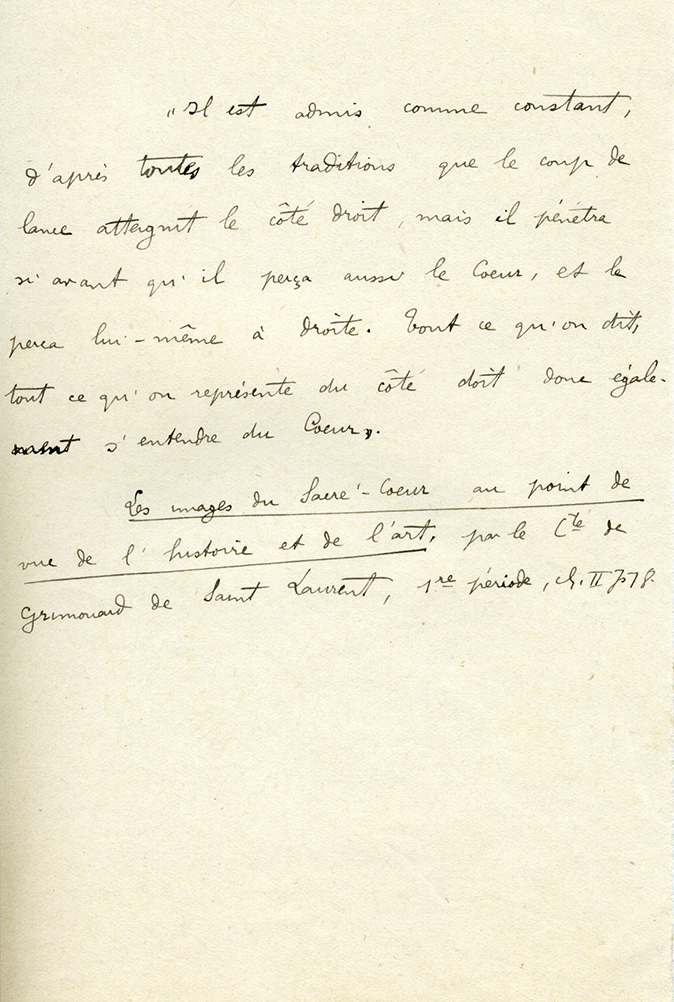 "Il est admis comme constant,
d'après toutes les traditions que le coup de
lance atteignit le côté droit, mais il pénétra
si avant qu'il perça aussi le Coeur, et le
perça lui-même à droite. Tout ce qu'on dit,
tout ce qu'on représente du côté doit donc égale-
ment s'entendre du Coeur".
Les images du Sacré-Coeur au point de
vue de l'histoire et de l'art, par le Cte de
Grimouard de Saint Laurent, 1re période, ch. II